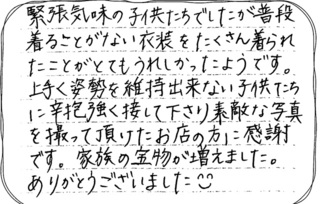 緊張気味の子供たちでしたが普段
着ることがない衣装をたくさん着られ
たことがとてもうれしかったようです。
上手く姿勢を維持出来ない子供たち
に辛抱強く接して下さり素敵な写真
を撮って頂けたお店の方に感謝
です。家族の宝物が増えました。
ありがとうございました